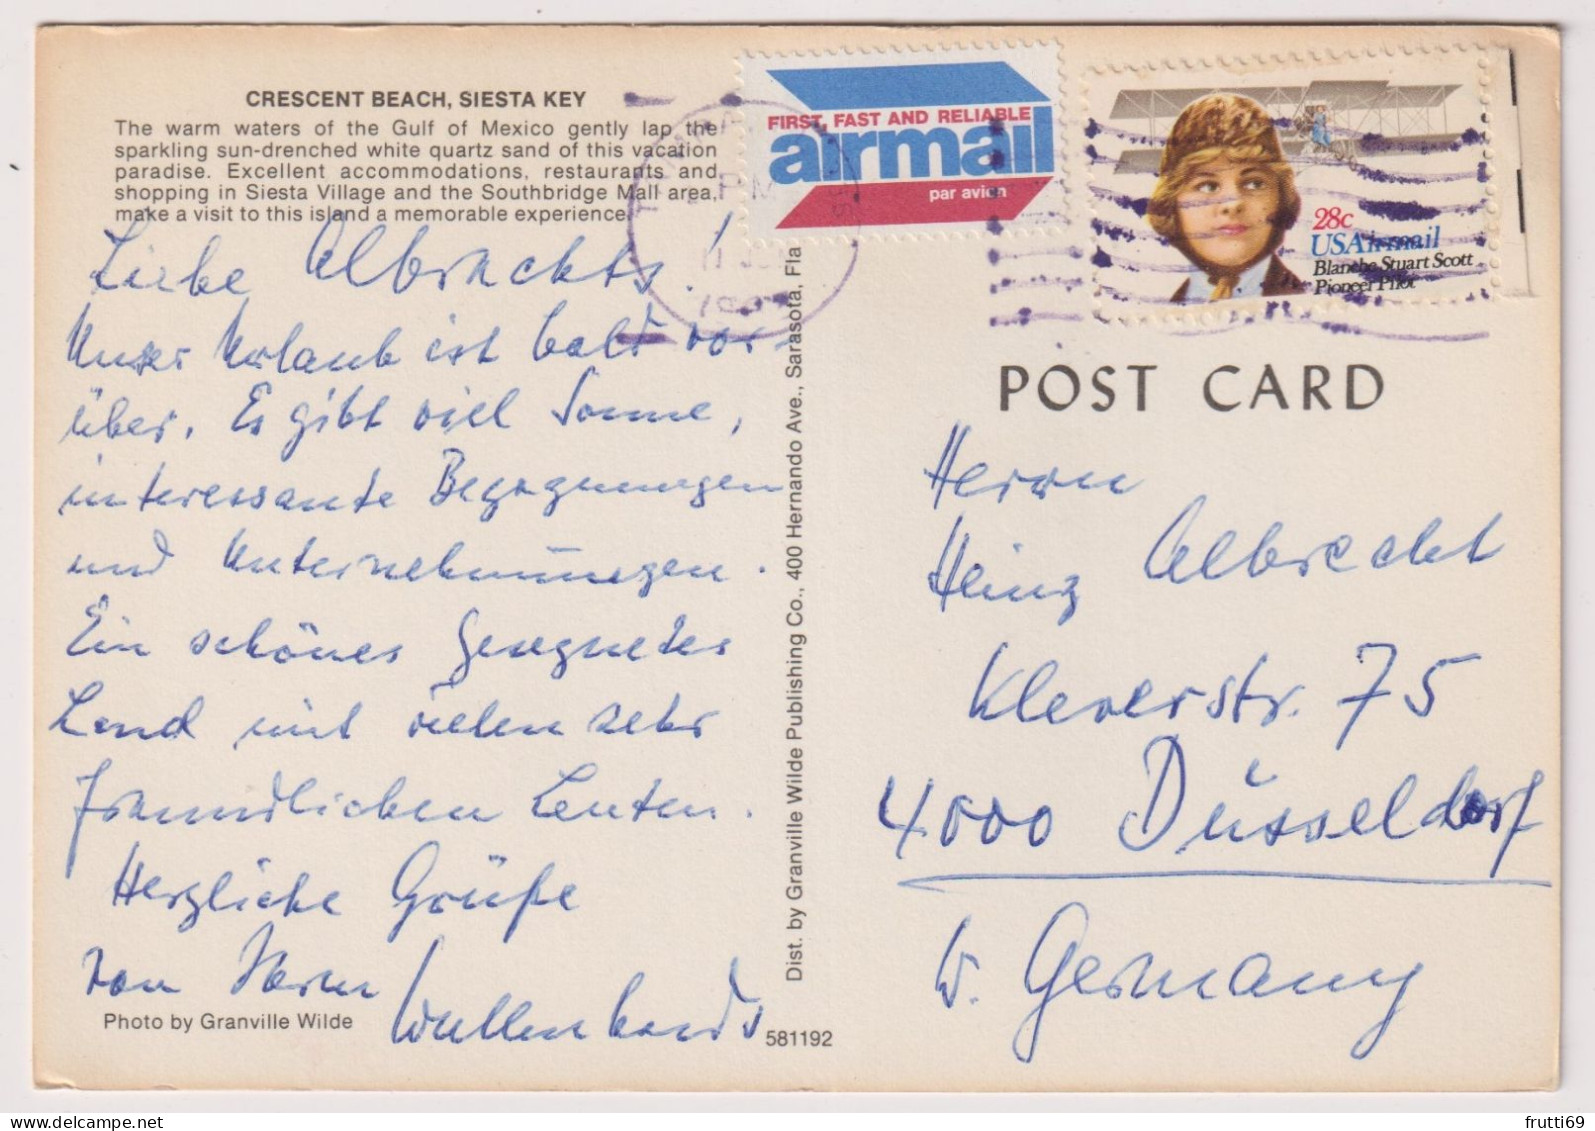 CRESCENT BEACH, SIESTA KEY
The warm waters of the Gulf of Mexico gently lap the
sparkling sun-drenched white quartz sand of this vacation
paradise. Excellent accommodations, restaurants and
shopping in Siesta Village and the Southbridge Mall area,
make a visit to this island a memorable experience.
Liebe Albrechts!
Unser Urlaub ist bald vor-
über. Es gibt viel Sonne,
interessante Begegnungen
und Unternehmungen.
Ein schönes gesegnetes
Land mit vielen sehr
freundlichen Leuten.
Herzliche Grüße
von Ihren
Wullenbords
Photo by Granville Wilde
581192
Dist. by Granville Wilde Publishing Co., 400 Hernando Ave., Sarasota, Fla
FIRST, FAST AND RELIABLE
airmail
par avion
PM
28c
USAirmail
Blanche Stuart Scott
Pioneer Pilot
POST CARD
Herrn
Heinz Albrecht
Kleverstr. 75
4000 Düsseldorf
W. Germany
frutti69